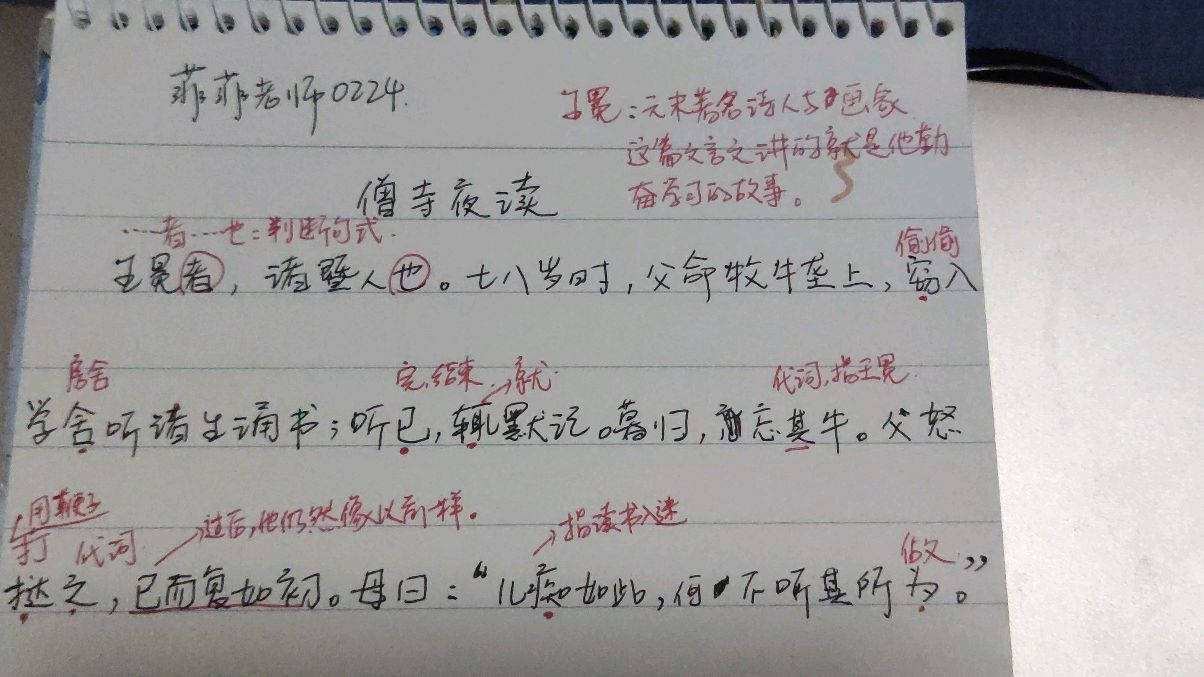 菲菲老师0224.
王冕：元末著名诗人与画家
这篇文言文讲的就是他勤
奋学习的故事。
僧寺夜读
……者……也：判断句式.
偷偷
王冕者，诸暨人也。七八岁时，父命牧牛垄上，窃入
房舍
完,结束
就.
代词,指王冕.
学舍听诸生诵书；听已，辄默记。暮归，忘其牛。父怒
用鞭子
打
代词
过后,他仍然像以前一样。
指读书入迷
做
挞之，已而复如初。母曰：“儿痴如此，何不听其所为。”